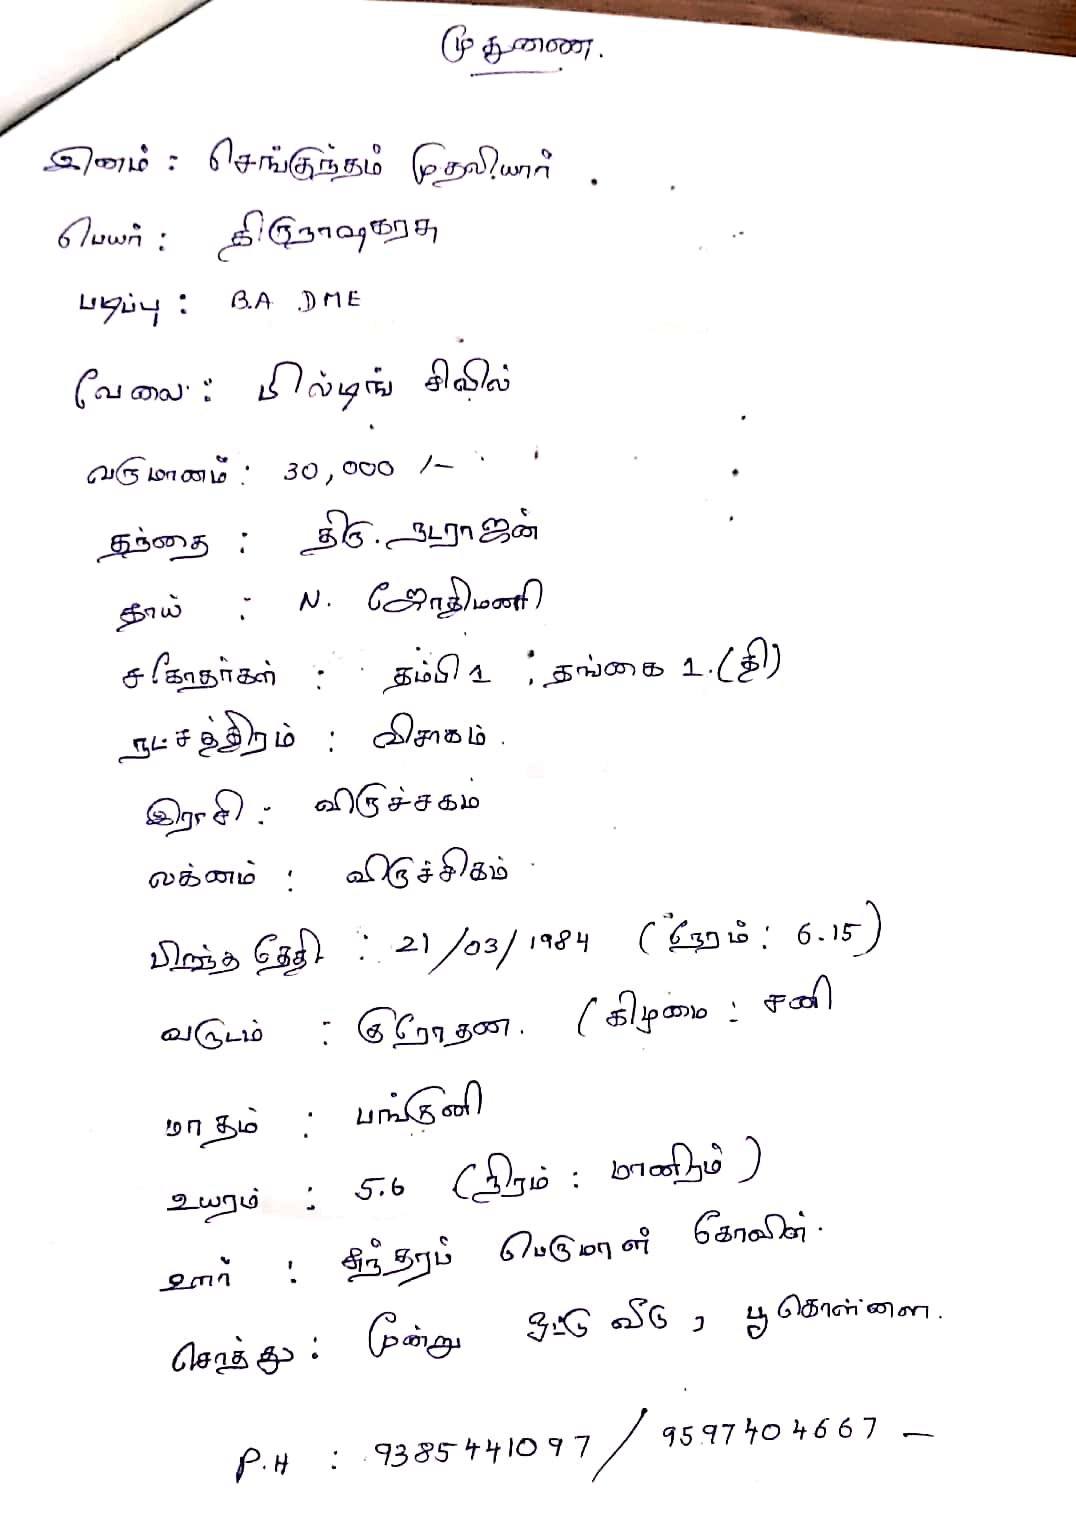 முதணை.
இனம் : செங்குந்தம் முதலியார்
பெயர் : திருநாவுகரசு
படிப்பு : B.A DME
வேலை : பில்டிங் சிவில்
வருமானம் : 30,000 /-
தந்தை : திரு. நடராஜன்
தாய் : N. ஜோதிமணி
சகோதர்கள் : தம்பி 1 ; தங்கை 1.(தி)
நட்சத்திரம் : விசாகம்.
இராசி : விருச்சகம்
லக்னம் : விருச்சிகம்
பிறந்த தேதி : 21/03/1984 (நேரம் : 6.15)
வருடம் : குரோதன. (கிழமை : சனி
மாதம் : பங்குனி
உயரம் : 5.6 (நிரம் : மாநிரம்)
ஊர் : சுந்தரப் பெருமாள் கோவில்.
சொத்து : மூன்று ஓட்டு வீடு, பூ கொள்ளை.
P.H : 9385441097 / 9597404667 -